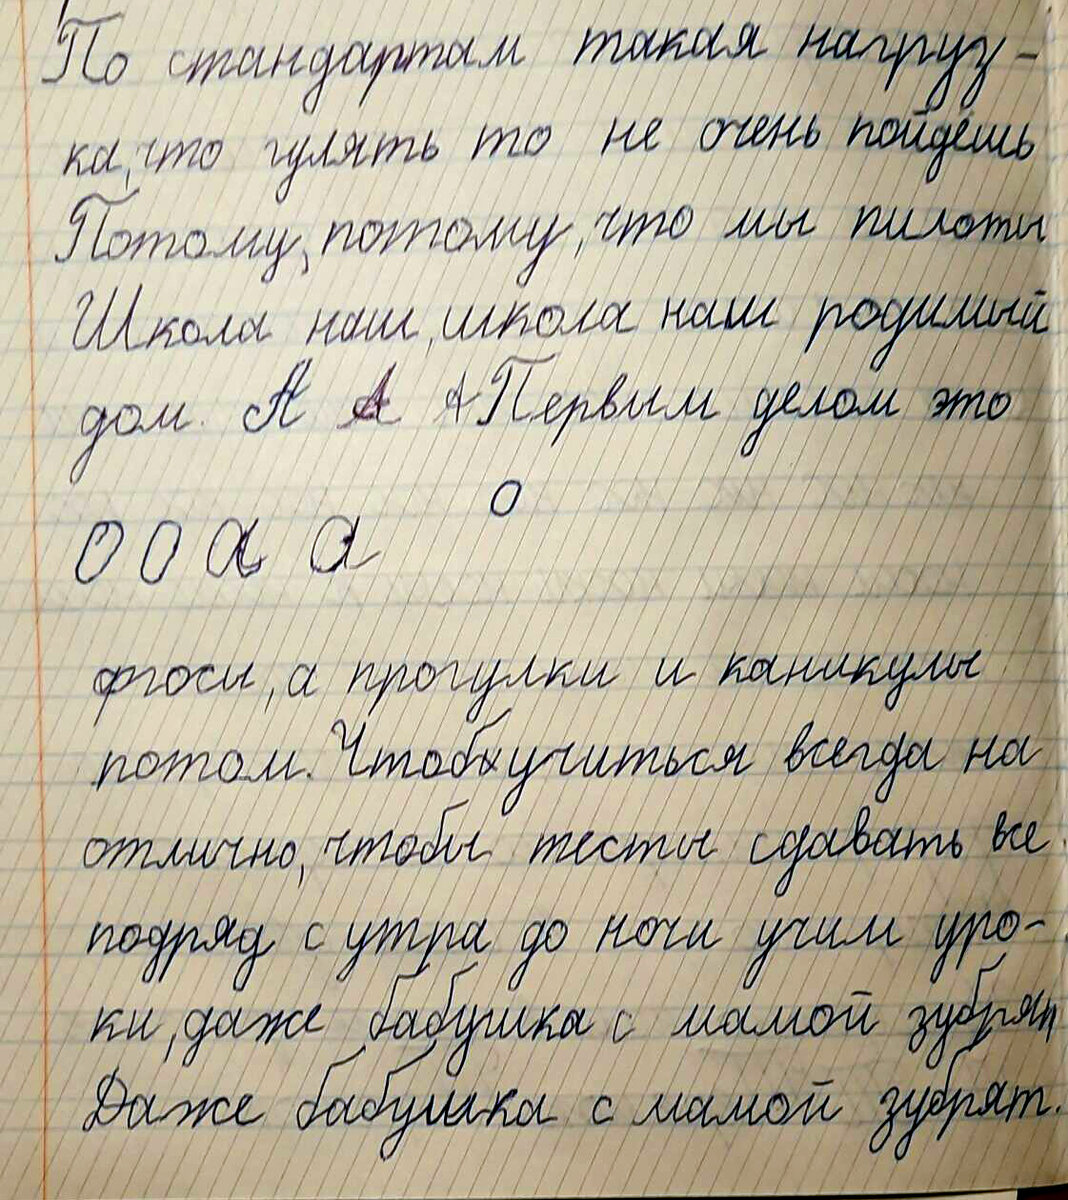 По стандартам такая нагруз-
ка, что гулять то не очень пойдёшь
Потому, потому, что мы пилоты
Школа наш, школа наш родимый
дом. А А А Первым делом это
о
О О а а
фгосы, а прогулки и каникулы
потом. Чтоб учиться всегда на
отлично, чтобы тесты сдавать все
подряд с утра до ночи учим уро-
ки, даже бабушка с мамой зубрят
Даже бабушка с мамой зубрят.